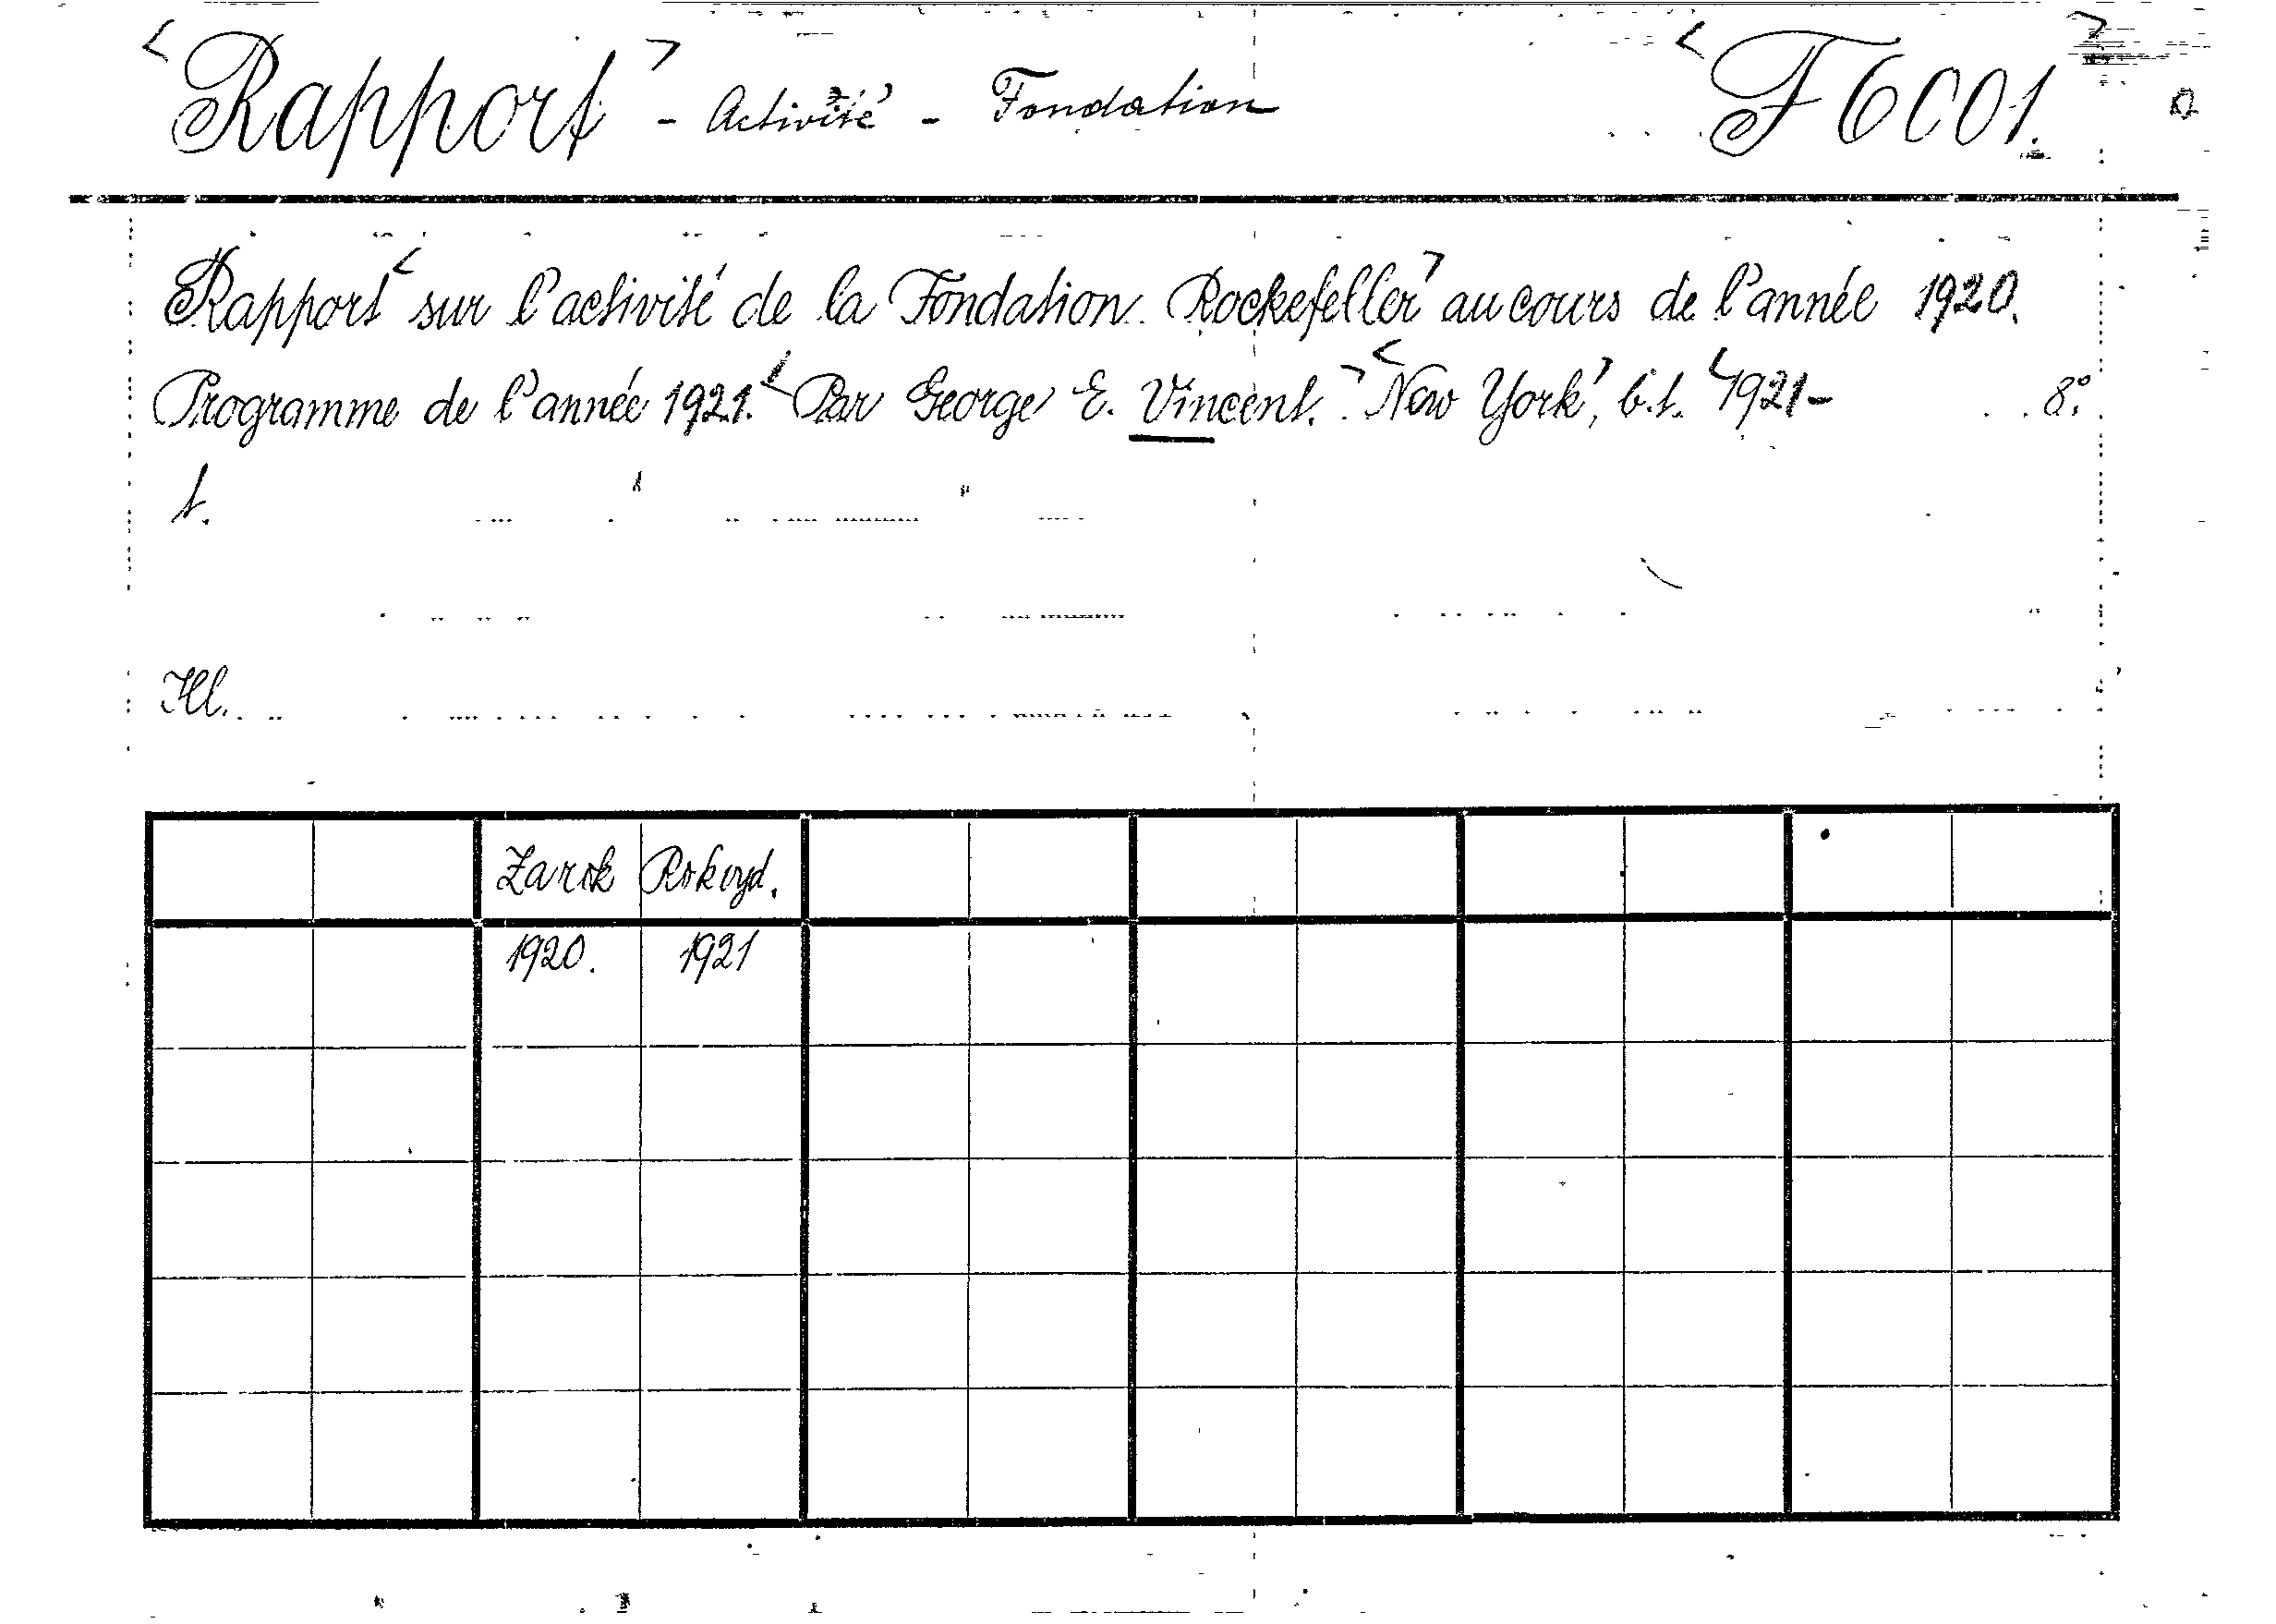 <Rapport> - Activité - Fondation <F 6001.>
Rapport < sur l'activité de la Fondation Rockefeller > au cours de l'année 1920.
Programme de l'année 1921. < Par George E. Vincent. > < New York >, b.t. < 1921- 8°.
t.
Kl.
Za rok Rok vyd.
1920. 1921